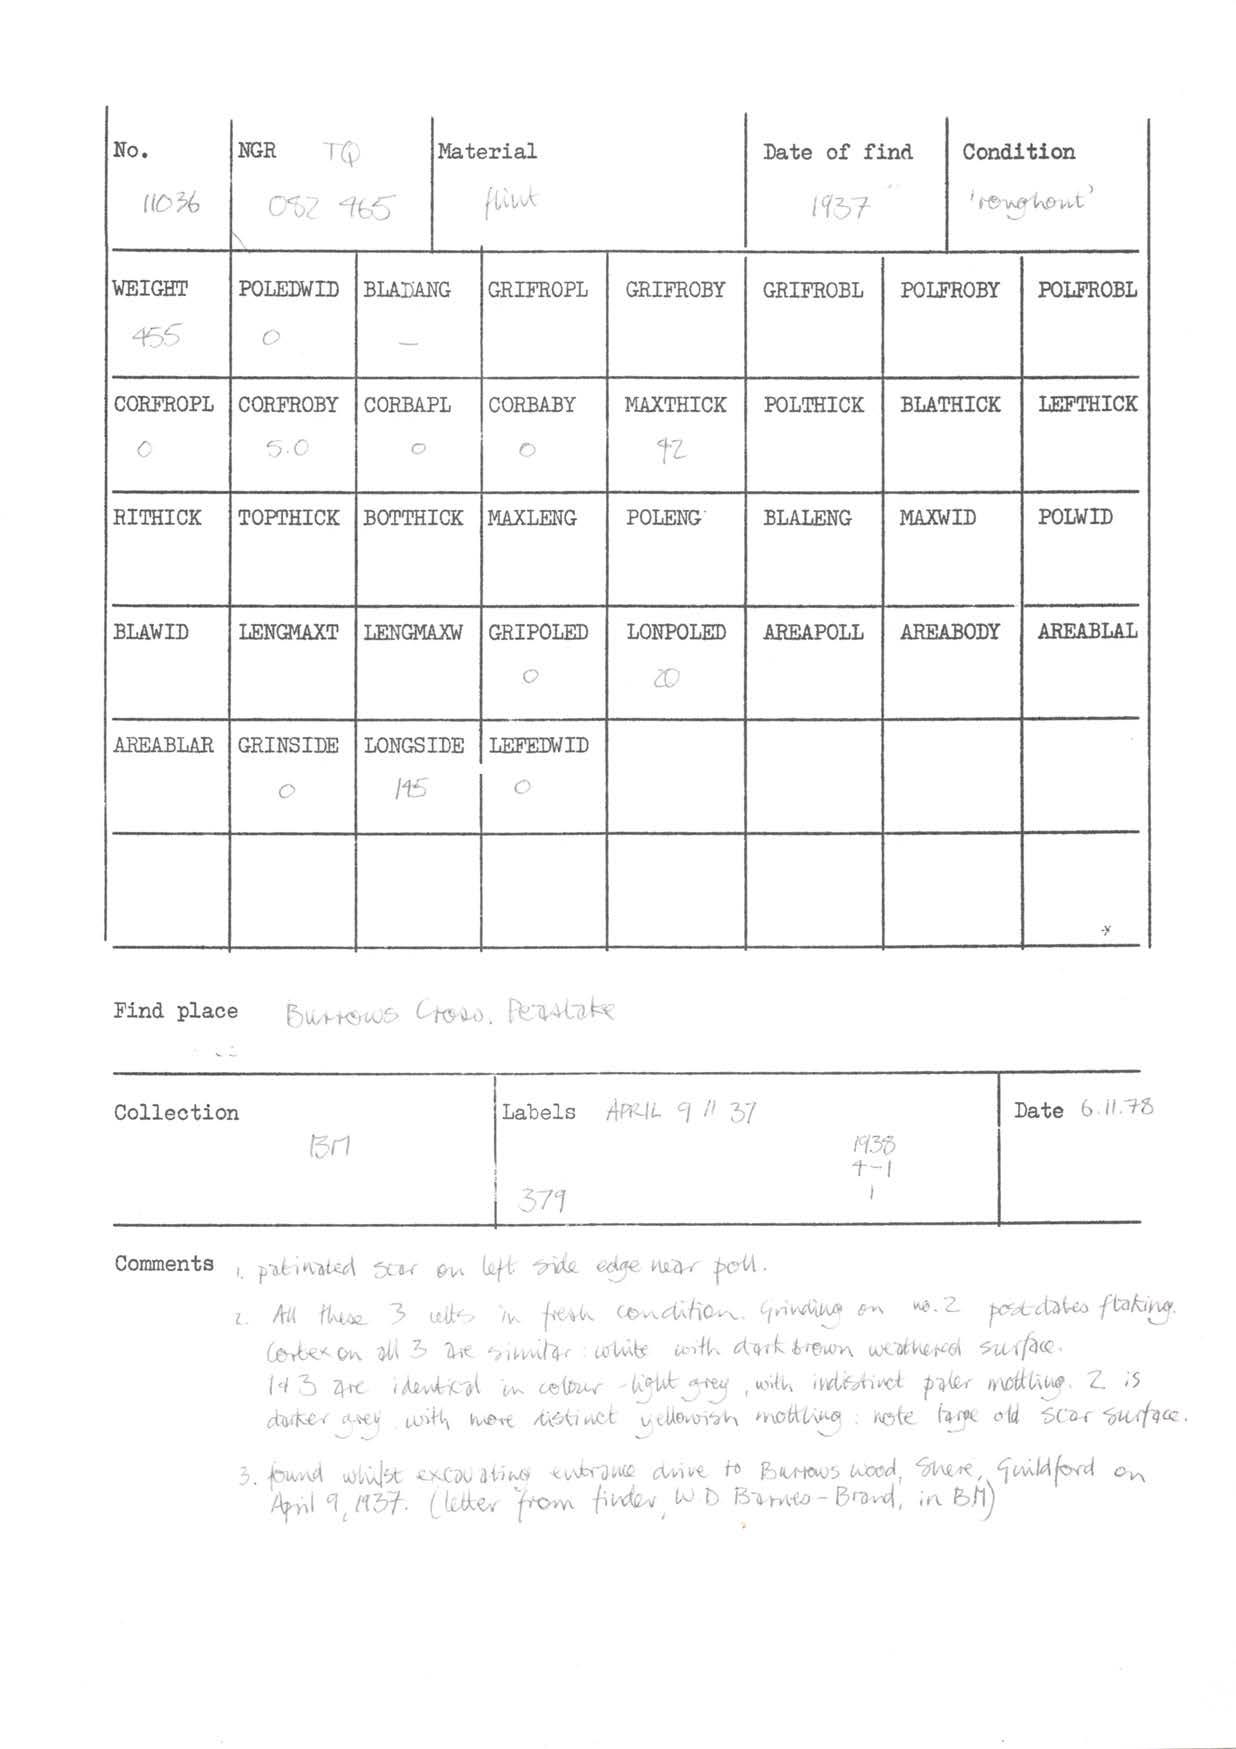 No. NGR TQ Material Date of find Condition
11036 082 465 flint 1937 'roughout'
WEIGHT POLEDWID BLADANG GRIFROPL GRIFROBY GRIFROBL POLFROBY POLFROBL
455 0 —
CORFROPL CORFROBY CORBAPL CORBABY MAXTHICK POLTHICK BLATHICK LEFTHICK
0 5.0 0 0 42
RITHICK TOPTHICK BOTTHICK MAXLENG POLENG BLALENG MAXWID POLWID
BLAWID LENGMAXT LENGMAXW GRIPOLED LONPOLED AREAPOLL AREABODY AREABLAL
0 20
AREABLAR GRINSIDE LONGSIDE LEFEDWID
0 145 0
Find place Burrows Cross. Peaslake
Collection Labels APRIL 9 // 37 Date 6.11.78
BM 1938
4-1
379 1
Comments 1. patinated scar on left side edge near poll.
2. All these 3 celts in fresh condition. Grinding on no. 2 postdates flaking.
Cortex on all 3 are similar : white with dark brown weathered surface.
1+3 are identical in colour - light grey, with indistinct paler mottling. 2 is
darker grey with more distinct yellowish mottling : note large old scar surface.
3. found whilst excavating entrance drive to Burrows Wood, Shere, Guildford on
April 9, 1937. (letter from finder, W D Barnes-Brand, in BM)